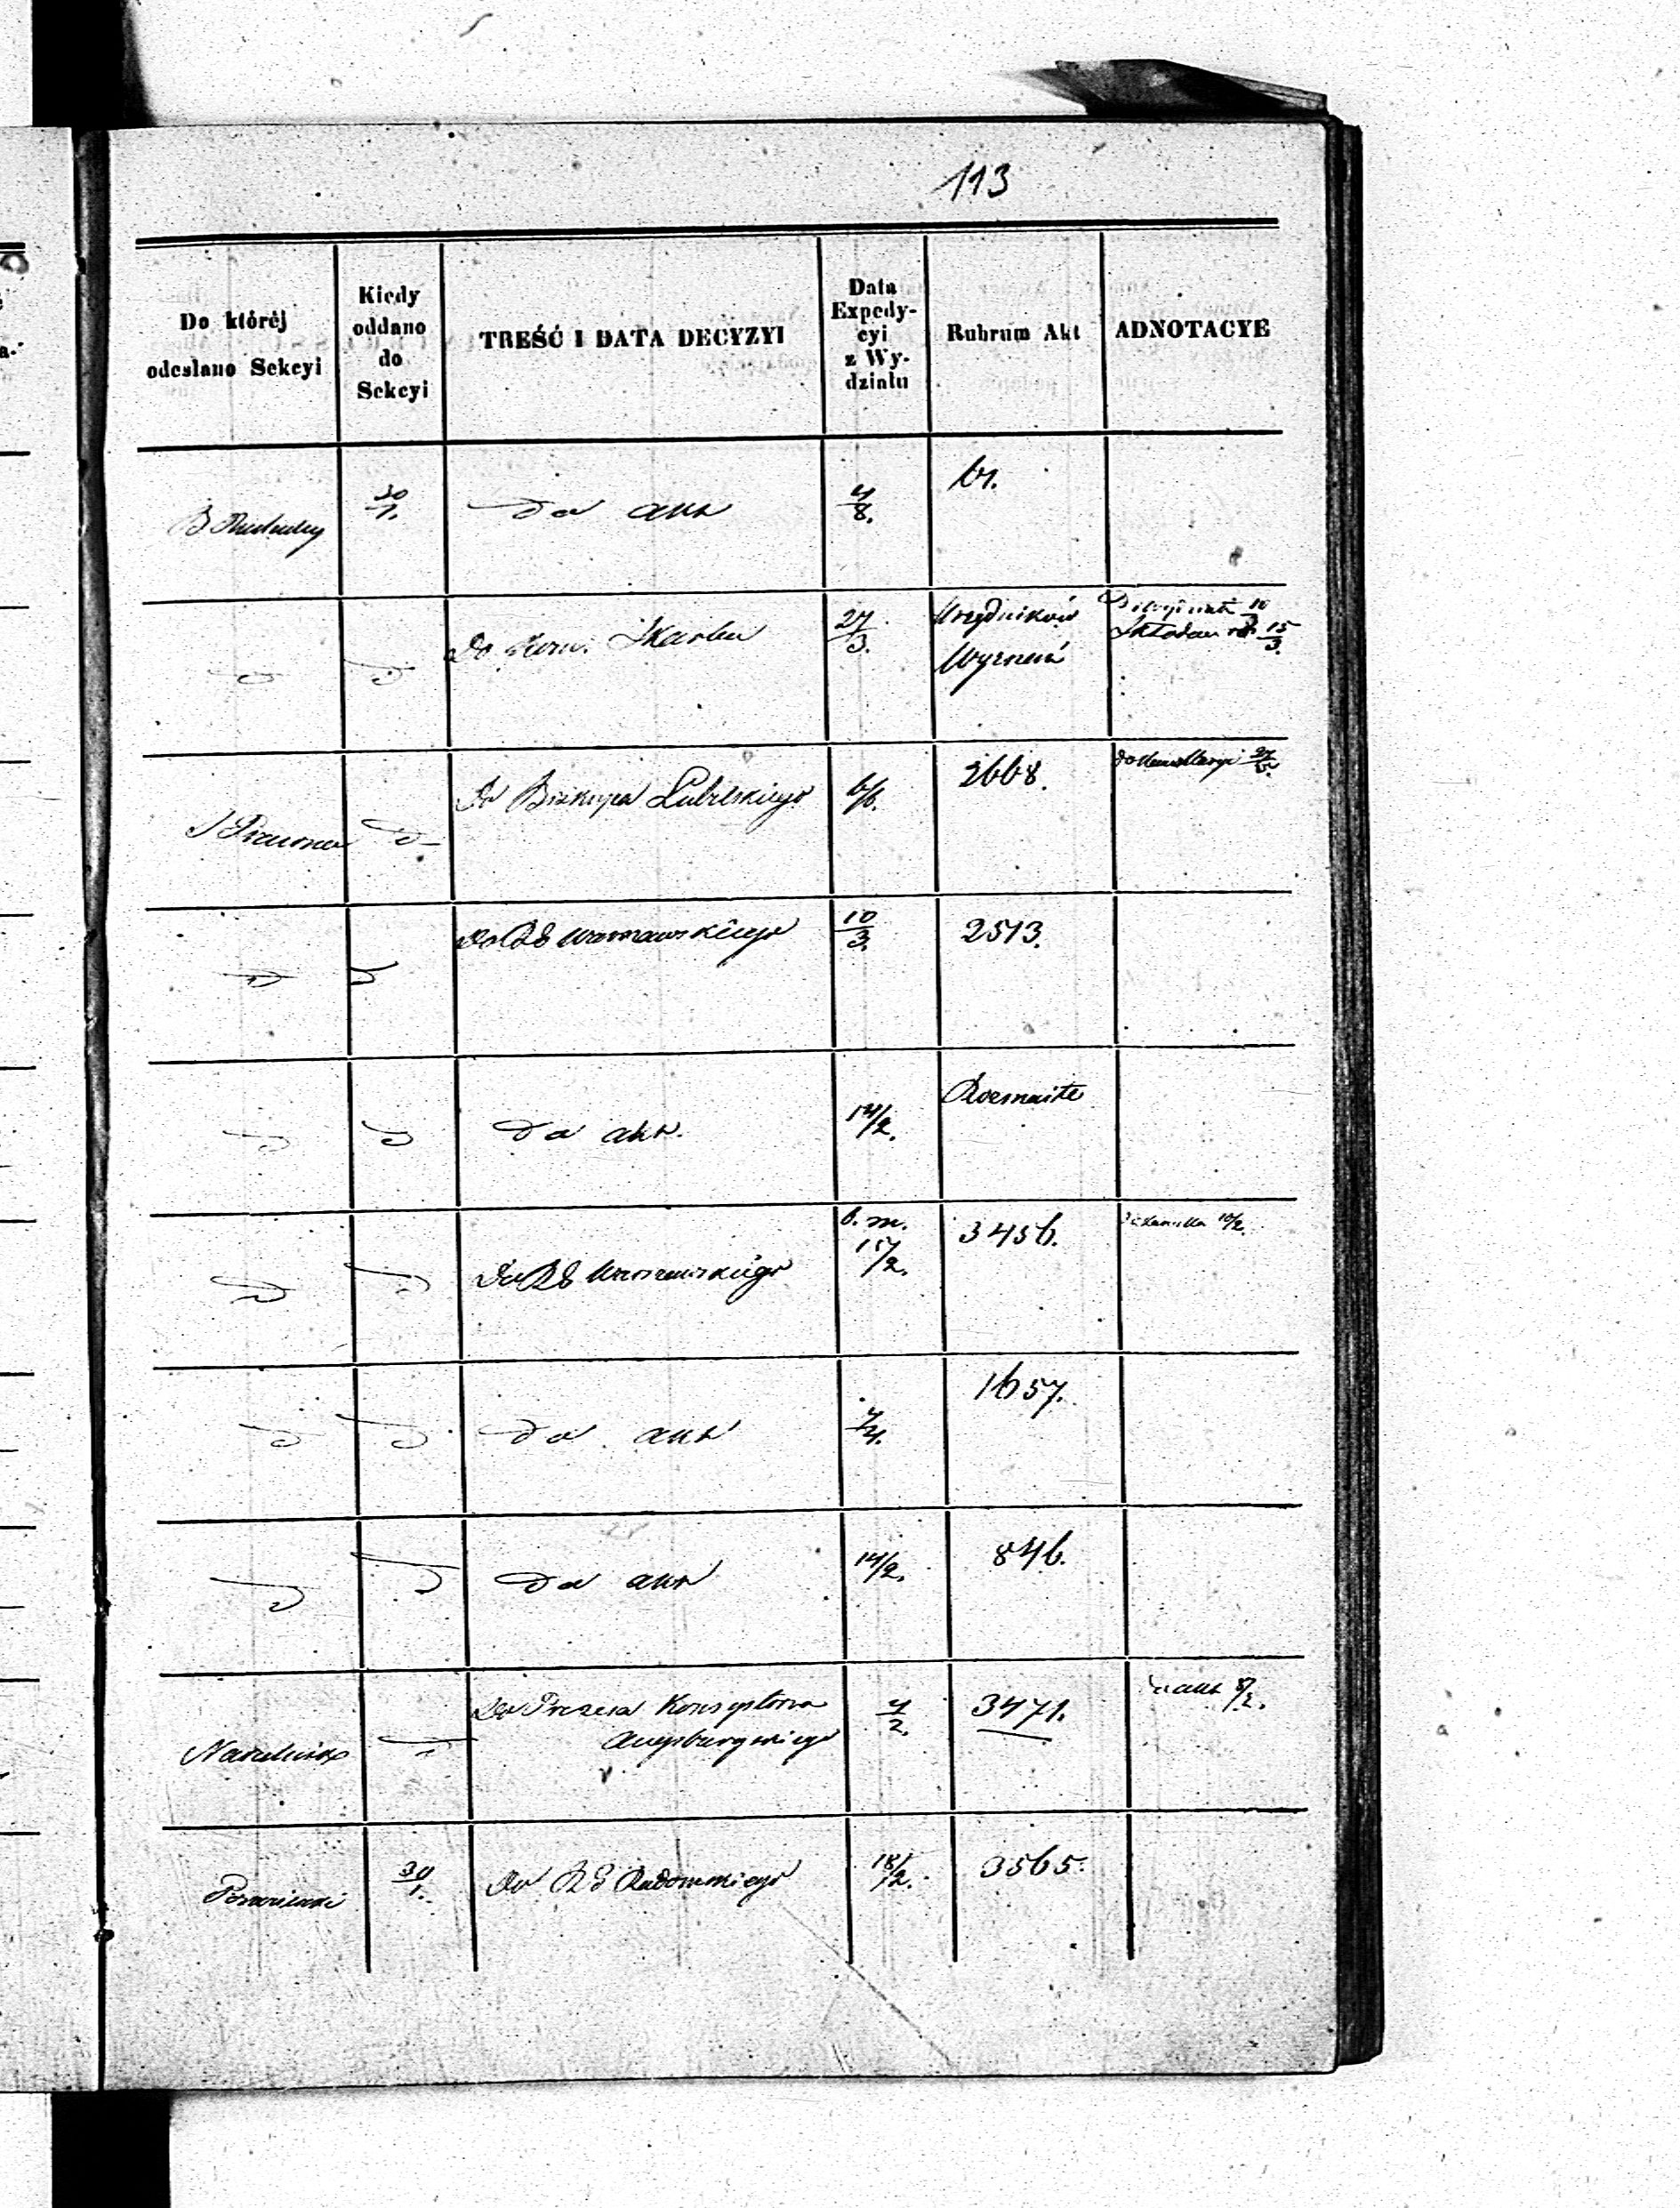 113
Do któréj
odesłano Sekcyi
Kiedy
oddano
do
Sekcyi
TREŚĆ I DATA DECYZYI
Data
Expedy-
cyi
z Wy-
działu
Rubrum Akt
ADNOTACYE
30/1.
Do akt
4/8.
Do Kom. Skarbu
27/3.
Urzędników
Wyznań
10
15/3.
Do Biskupa Lubelskiego
6/6.
2668.
Do RG Warszawskiego
10/3.
2513.
Do akt.
14/2.
Rozmaite
Do RG Warszawskiego
b. m.
15/2.
3456.
10/2.
Do akt
7/4.
1657.
Do akt
14/2.
846.
Do Prezesa Konsystorza
Augsburgskiego
4/2.
3471.
30/1.
Do RG Radomskiego
18/2.
3565.